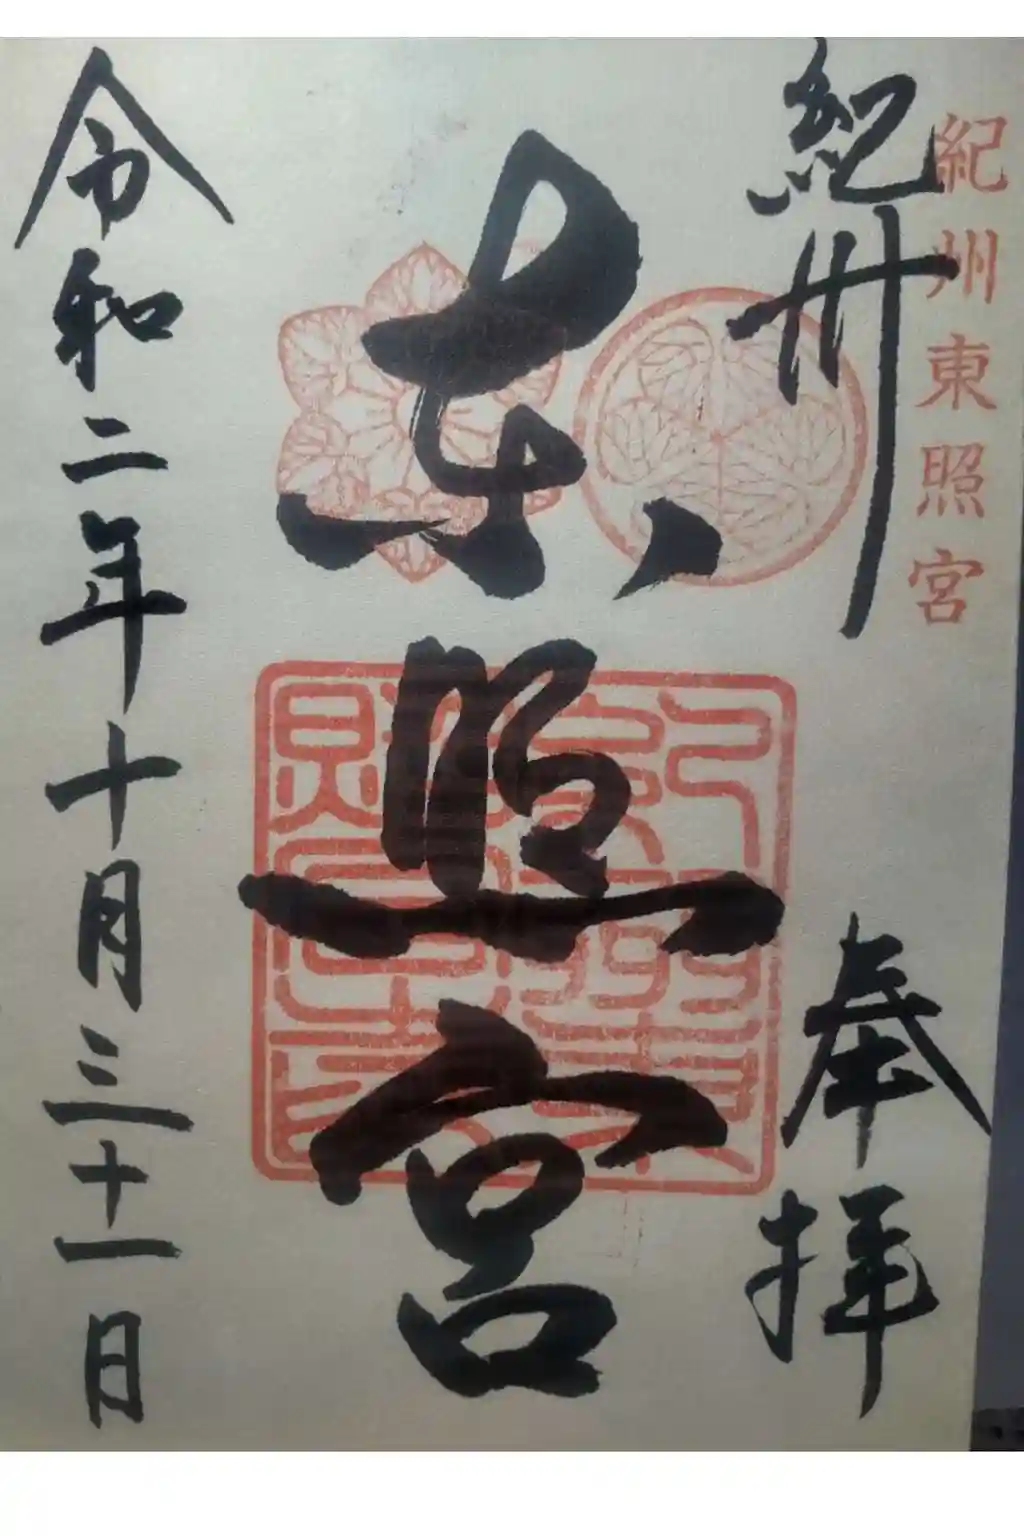 紀州東照宮
紀州 奉拝
東照宮
令和二年十月三十一日